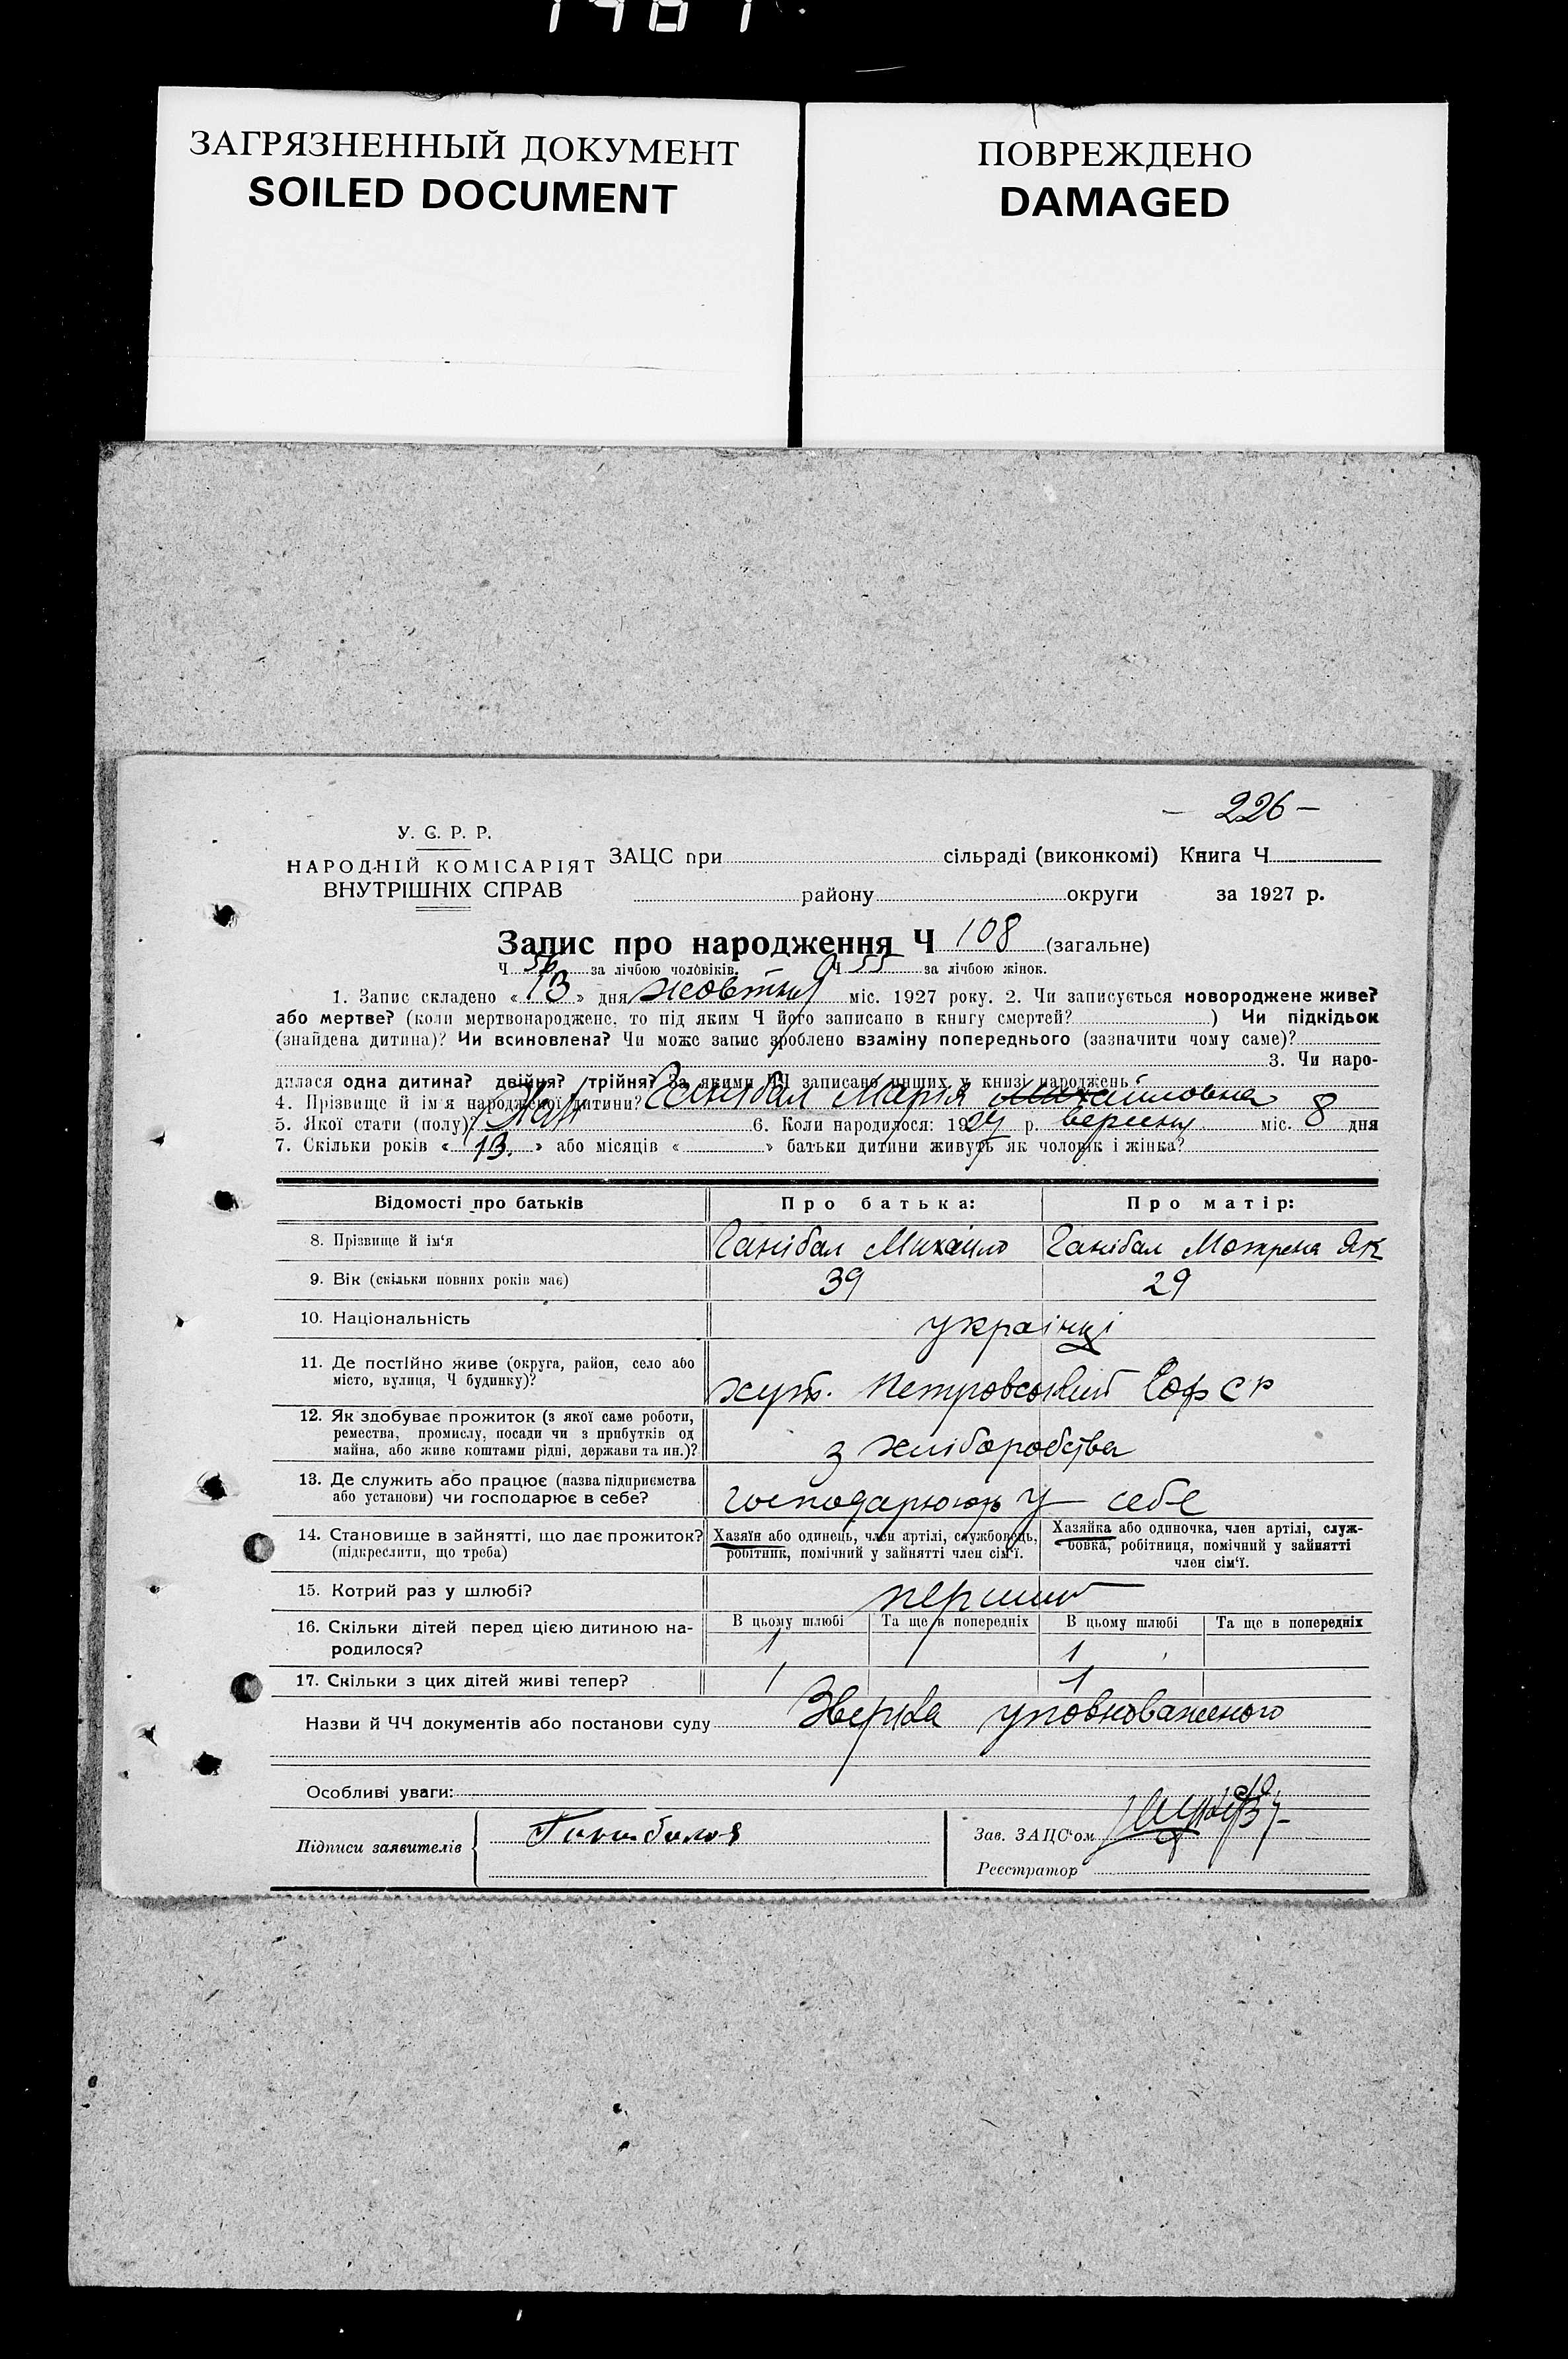 ЗАГРЯЗНЕННЫЙ ДОКУМЕНТ
SOILED DOCUMENT
ПОВРЕЖДЕНО
DAMAGED
— 226 —
У. С. Р. Р.
НАРОДНІЙ КОМІСАРІЯТ
ВНУТРІШНІХ СПРАВ
ЗАЦС при сільраді (виконкомі) Книга Ч
району округи за 1927 р.
Запис про народження Ч 108 (загальне)
Ч 56 за лічбою чоловіків. Ч 55 за лічбою жінок.
1. Запис складено « 13 » дня жовтня міс. 1927 року. 2. Чи записується новороджене живе?
або мертве? (коли мертвонароджене, то під яким Ч його записано в книгу смертей? ) Чи підкідьок
(знайдена дитина)? Чи всиновлена? Чи може запис зроблено взаміну попереднього (зазначити чому саме)?
3. Чи наро-
дилася одна дитина? двійня? трійня? За якими ЧЧ записано инших у книзі народжень
4. Прізвище й ім'я народженої дитини? Ганібал Марія Михайловна
5. Якої стати (полу)? Жін 6. Коли народилося: 1927 р. вересня міс. 8 дня
7. Скільки років « 13. » або місяців « » батьки дитини живуть як чоловік і жінка?
Відомості про батьків Про батька: Про матір:
8. Прізвище й ім'я Ганібал Михайло Ганібал Мотрена Як
9. Вік (скільки повних років має) 39 29
10. Національність українці
11. Де постійно живе (округа, район, село або
місто, вулиця, Ч будинку)? хут. Петровський Соф С Р
12. Як здобуває прожиток (з якої саме роботи,
ремества, промислу, посади чи з прибутків од
майна, або живе коштами рідні, держави та ин.)? з хліборобства
13. Де служить або працює (назва підприємства
або установи) чи господарює в себе? господарюють у себе
14. Становище в зайнятті, що дає прожиток?
(підкреслити, що треба)
Хазяїн або одинець, член артілі, службовець,
робітник, помічний у зайнятті член сім'ї.
Хазяйка або одиночка, член артілі, служ-
бовка, робітниця, помічний у зайнятті
член сім'ї.
15. Котрий раз у шлюбі? перший
16. Скільки дітей перед цією дитиною на-
родилося?
В цьому шлюбі Та ще в попередніх В цьому шлюбі Та ще в попередніх
1 1
17. Скільки з цих дітей живі тепер? 1 1
Назви й ЧЧ документів або постанови суду уповноваженого
Особливі уваги:
Підписи заявителів
Зав. ЗАЦС'ом
Реєстратор